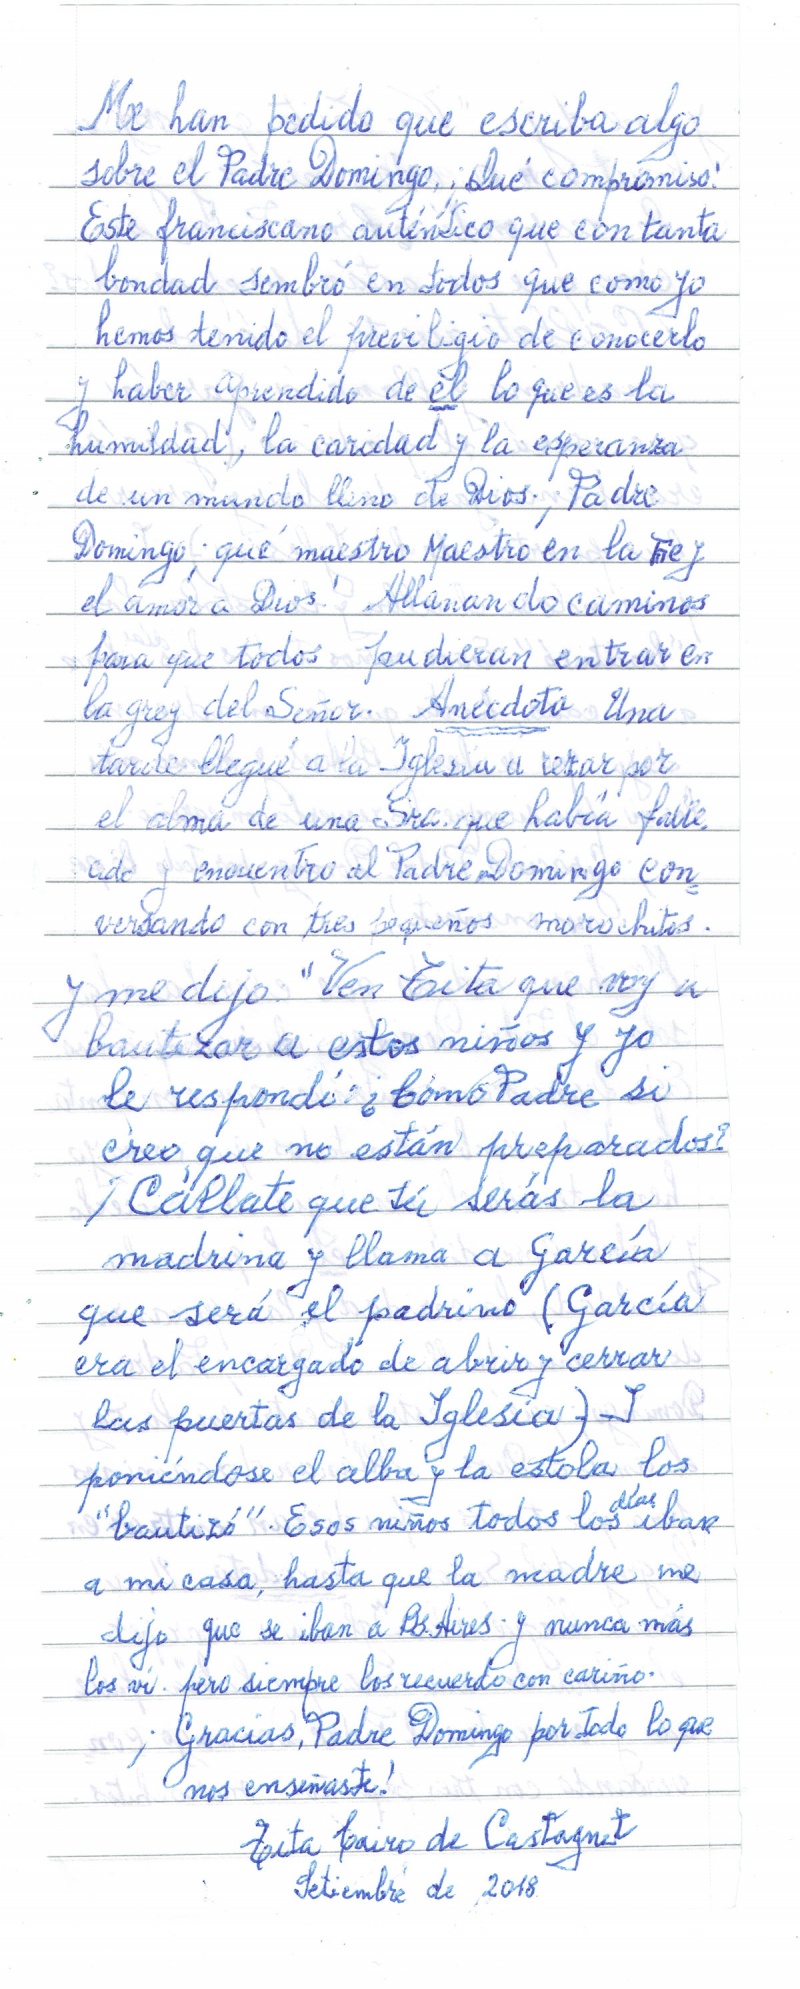 Me han pedido que escriba algo
sobre el Padre Domingo, ¡Qué compromiso!
Este franciscano auténtico que con tanta
bondad sembró en todos que como yo
hemos tenido el previligio de conocerlo
y haber aprendido de él lo que es la
humildad, la caridad y la esperanza
de un mundo lleno de Dios. ¡Padre
Domingo, qué maestro Maestro en la Fe y
el amor a Dios! Allanando caminos
para que todos pudieran entrar en
la grey del Señor. Anecdota Una
tarde llegué a la Iglesia a rezar por
el alma de una Sra. que había falle
cido y encuentro al Padre Domingo con=
versando con tres pequeños morochitos.
y me dijo "Ven Tita que voy a
bautizar a estos niños y yo
le respondí: ¿Cómo Padre si
creo que no están preparados?
¡Cállate que tú serás la
madrina y llama a García
que será el padrino (García
era el encargado de abrir y cerrar
las puertas de la Iglesia) - I
poniéndose el alba y la estola los
"bautizó". Esos niños todos los días iban
a mi casa, hasta que la madre me
dijo que se iban a Bs. Aires y nunca más
los ví. pero siempre los recuerdo con cariño.
¡Gracias, Padre Domingo por todo lo que
nos enseñaste!
Tita Cairo de Castagnet
Setiembre de 2018